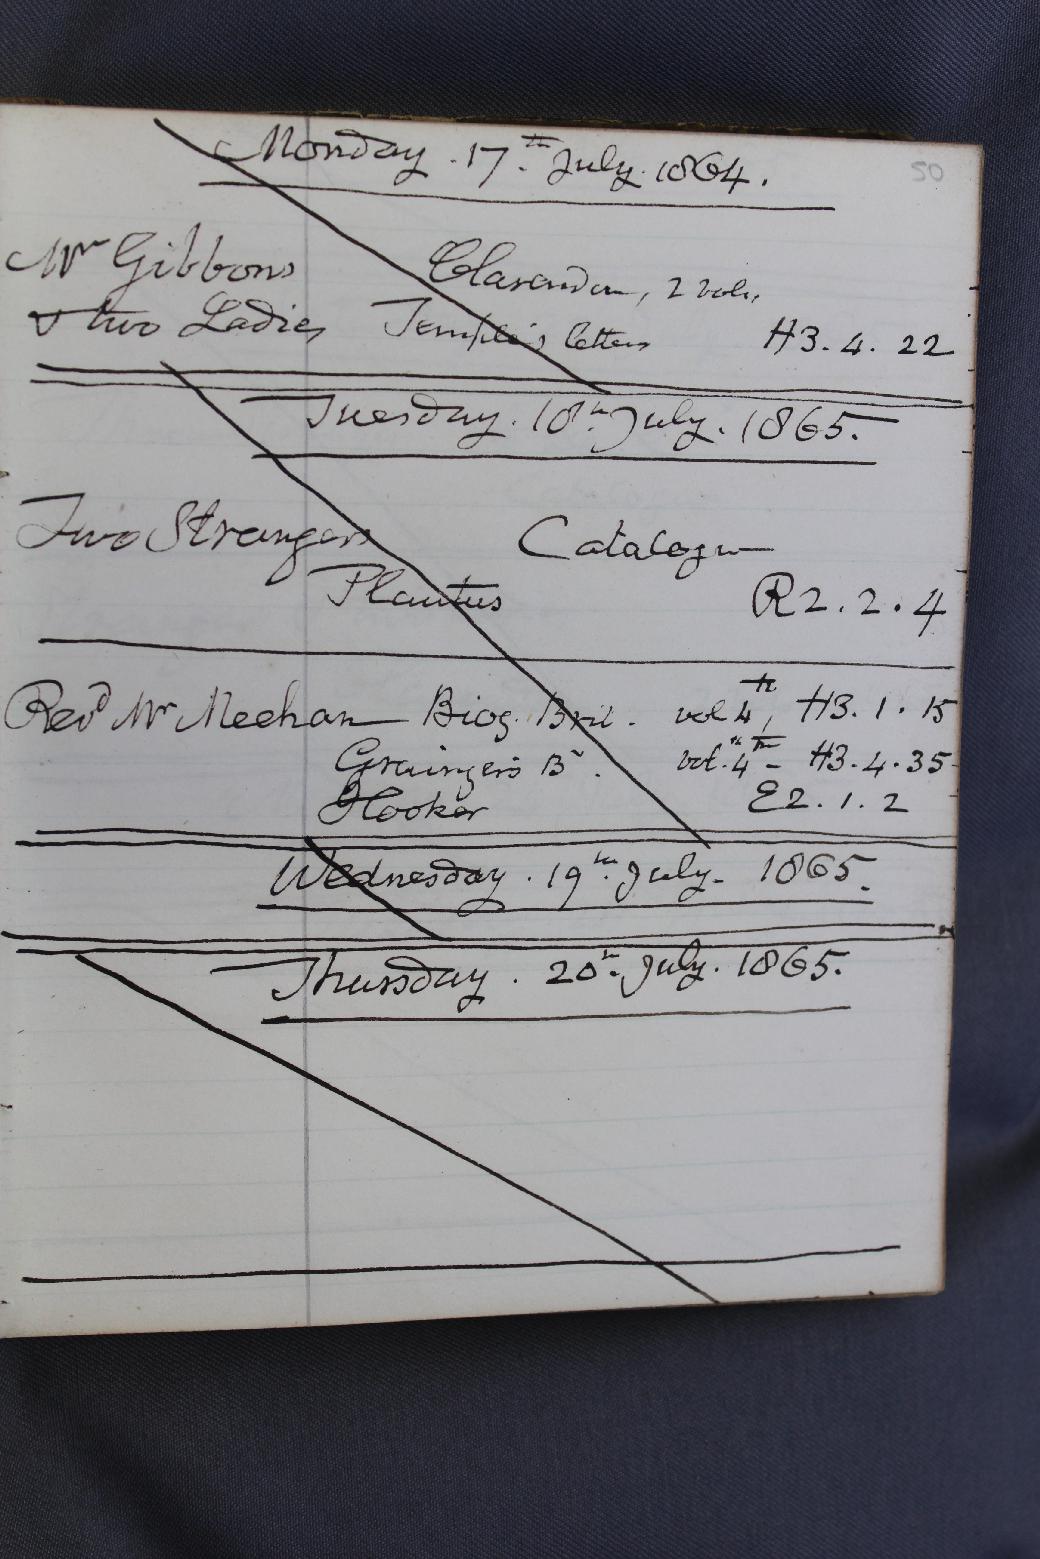 50
Monday. 17th July. 1864.
Mr Gibbons Clarendon, 2 vols,
& two Ladies Temple's letters H3. 4. 22
Tuesday. 18th July. 1865.
Two Strangers Catalogue
Plautus R2. 2. 4
Revd Mr Meehan Biog. Brit. vol 4th, H3. 1. 15
Grainger's B. vol. 4th H3. 4. 35
Hooker E2. 1. 2
Wednesday. 19th July. 1865.
Thursday. 20th July. 1865.